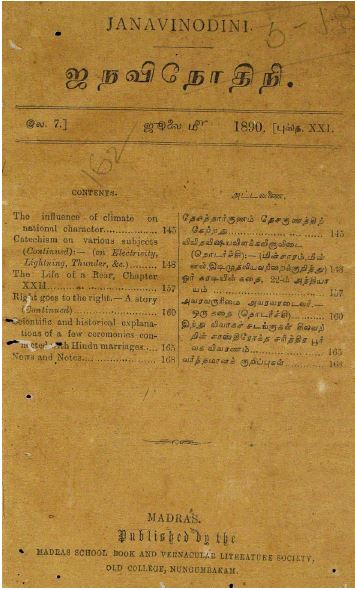 JANAVINODINI.
ஜநவிநோதிநி.
இல. 7.] ஜூலை மீ 1890. [புஸ்த. XXI.
162
CONTENTS.
The influence of climate on
national character 145
Catechism on various subjects
(Continued):— (on Electricity,
Lightning, Thunder, &c.) 148
The Life of a Bear, Chapter
XXII 157
Right goes to the right.—A story
(Continued) 160
Scientific and historical explana-
tions of a few ceremonies con-
nected with Hindu marriages 165
News and Notes 168
அட்டவணை.
தேசத்தார்குணம் தேசகுணத்திற்
கேற்றது 145
விவிதவிஷயவினாவிடை
(தொடர்ச்சி):— (மின்சாரம், மின்
னல், இடிமுதலியவற்றைக்குறித்து) 148
ஓர் கரடியின் கதை, 22-ம் அத்தியா
யம் 157
அவரவருரிமை அவரவரடைவர்.—
ஒரு கதை (தொடர்ச்சி) 160
இந்து விவாகச் சடங்குகள் சிலவற்
றின் சாஸ்திரோக்த சரித்திர பூர்
வக விவரணம் 165
வர்த்தமானக் குறிப்புகள் 168
MADRAS.
Published by the
MADRAS SCHOOL BOOK AND VERNACULAR LITERATURE SOCIETY,
OLD COLLEGE, NUNGUMBAKAM.